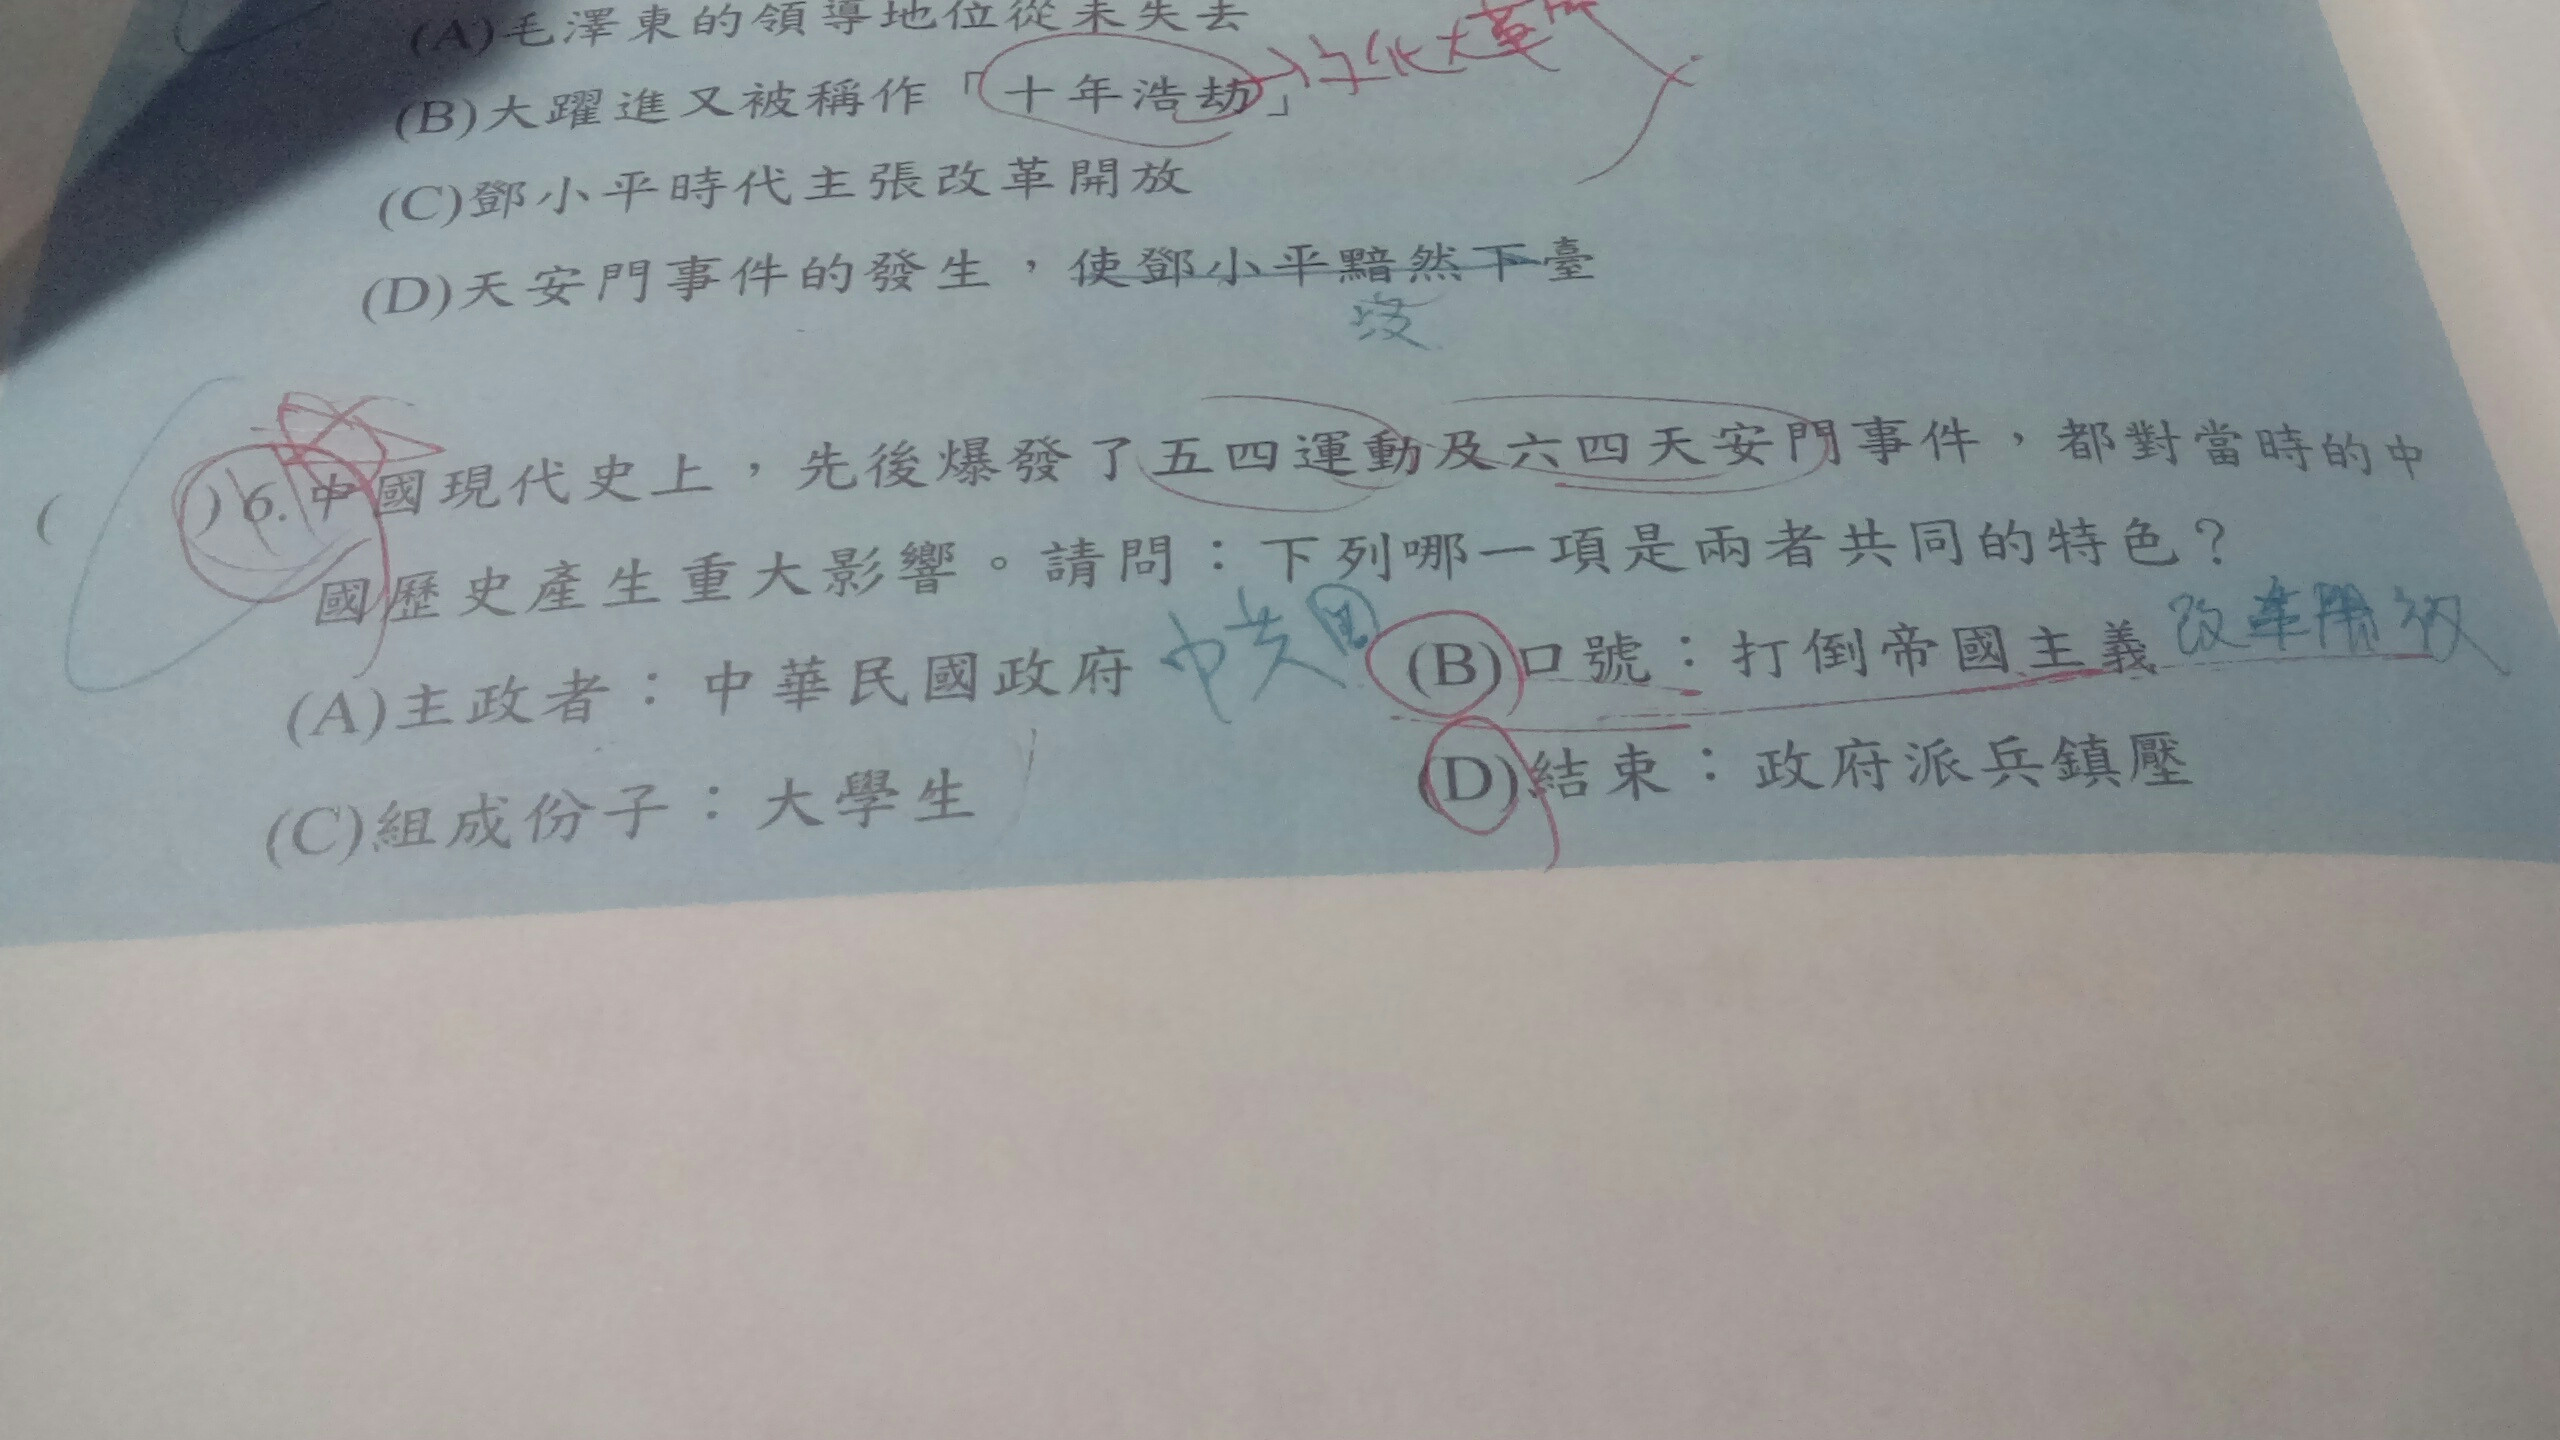 (A)毛澤東的領導地位從未失去
(B)大躍進又被稱作「十年浩劫」→文化大革命
(C)鄧小平時代主張改革開放
(D)天安門事件的發生，使鄧小平黯然下臺
沒
( )6.中國現代史上，先後爆發了五四運動及六四天安門事件，都對當時的中
國歷史產生重大影響。請問：下列哪一項是兩者共同的特色？
(A)主政者：中華民國政府 中共 (B)口號：打倒帝國主義 改革開放
(C)組成份子：大學生 (D)結束：政府派兵鎮壓